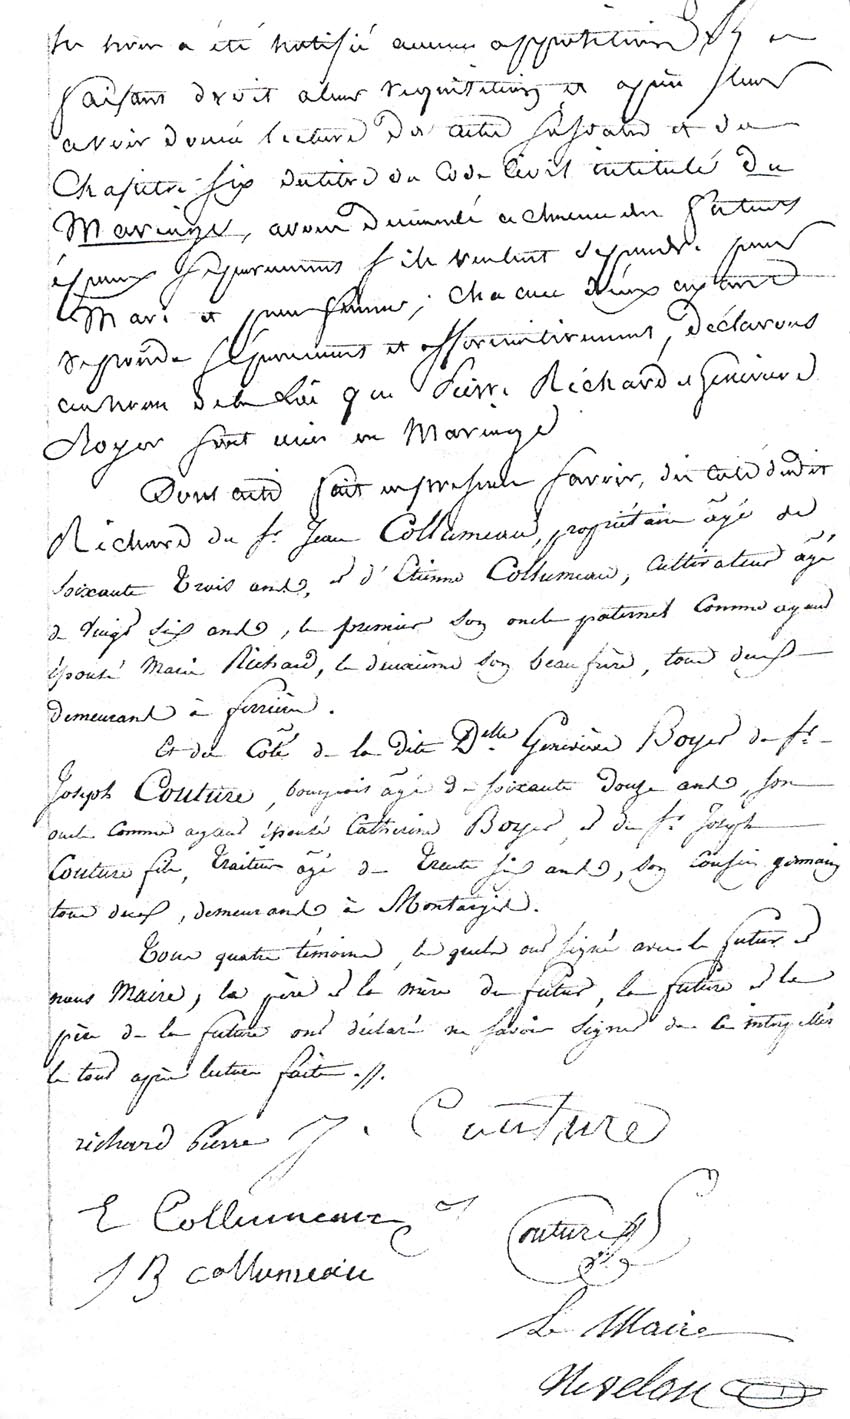 ne nous a été notifié aucune opposition
faisant droit à leur réquisition, et après leur
avoir donné lecture des actes susdatés et du
Chapitre six du titre du Code Civil intitulé du
Mariage, avons demandé à chacun des futurs
époux séparément s'ils veulent se prendre pour
Mari et pour femme; chacun d'eux ayant
répondu séparément et affirmativement, déclarons
au nom de la Loi que Pierre Richard et Genevieve
Boyer sont unis en Mariage
Dont acte fait en présence savoir, du côté dudit
Richard du Sr. Jean Collumeau, propriétaire âgé de
soixante Trois ans, et d'Etienne Collumeau, Cultivateur âgé
de vingt six ans, le premier son oncle paternel Comme ayant
épousé Marie Richard, le deuxième son beau frère, tous deux
demeurant à ferrière.
Et du Côté de la dite Delle Geneviève Boyer du Sr.
Joseph Couture, bourgeois âgé de soixante Douze ans, son
oncle Comme ayant épousé Catherine Boyer, et du Sr. Joseph
Couture fils, Traiteur âgé de Trente six ans, son Cousin germain
tous deux, demeurans à Montargis.
Tous quatre témoins, lesquels ont signé avec le futur et
nous Maire, le père et la mère du futur, la future et le
père de la future ont déclaré ne savoir signer de ce interpellés
le tout après lecture faite.//.
richard pierre J. Couture
E Collumeau
Couture
J B collumeau
Le Maire